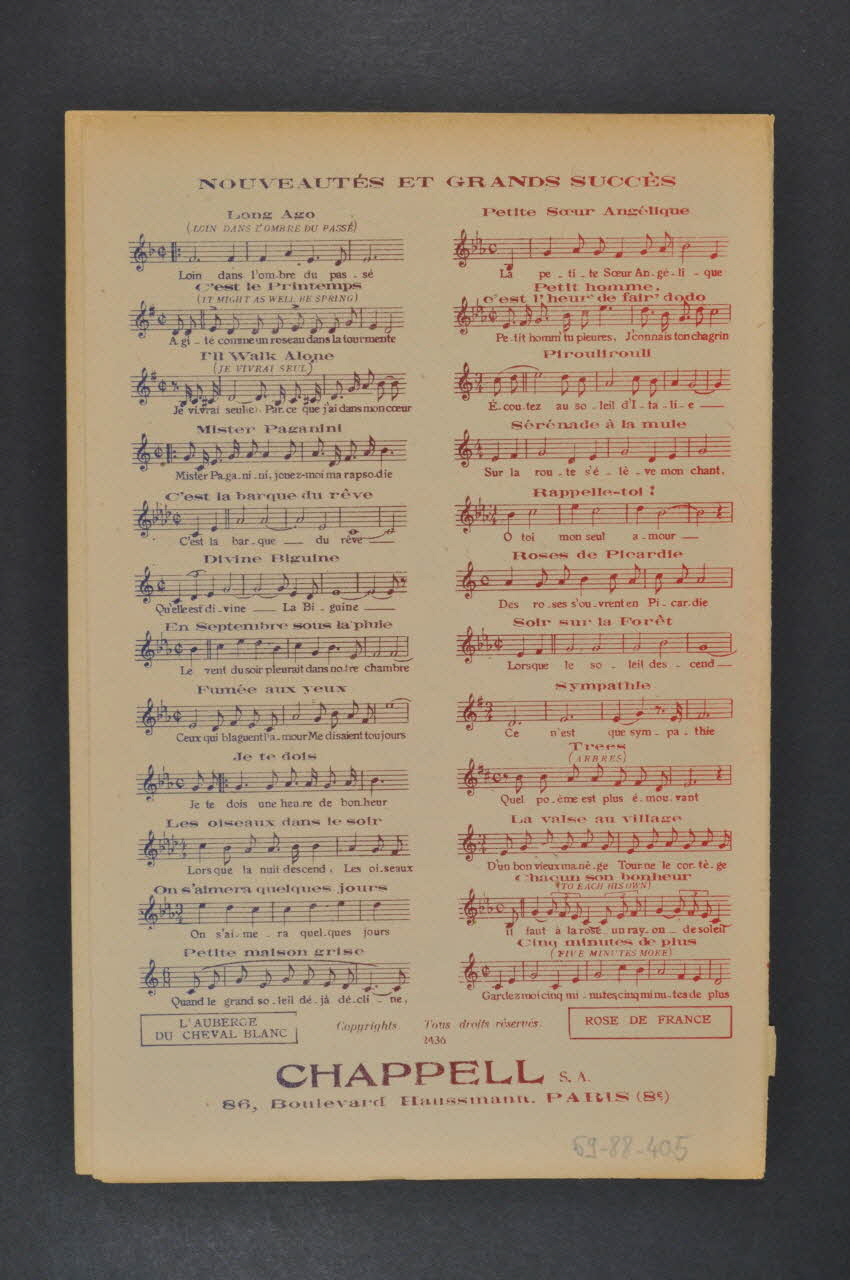 NOUVEAUTÉS ET GRANDS SUCCÈS
Long Ago
(LOIN DANS L'OMBRE DU PASSÉ)
Loin dans l'om-bre du pas - sé
C'est le Printemps
(IT MIGHT AS WELL BE SPRING)
A-gi - té comme un roseau dans la tourmente
I'll Walk Alone
(JE VIVRAI SEUL)
Je vi-vrai seul(e) Par-ce que j'ai dans mon cœur
Mister Paganini
Mister Pa-ga-ni-ni, jouez-moi ma rapso-die
C'est la barque du rêve
C'est la bar-que du rêve
Divine Biguine
Qu'elle est di-vine La Bi - guine
En Septembre sous la pluie
Le vent du soir pleurait dans no-tre chambre
Fumée aux yeux
Ceux qui blaguent l'a-mour Me disaient toujours
Je te dois
Je te dois une heu-re de bon-heur
Les oiseaux dans le soir
Lors que la nuit descend, Les oi-seaux
On s'aimera quelques jours
On s'ai - me - ra quel-ques jours
Petite maison grise
Quand le grand so-leil dé-jà dé-cli - ne,
L'AUBERGE
DU CHEVAL BLANC
Petite Sœur Angélique
La pe - ti - te Sœur An-gé-li - que
Petit homme,
c'est l'heur' de fair' dodo
Pe-tit homm' tu pleures, J'connais ton chagrin
Piroulirouli
É-cou-tez au so-leil d'I-ta-li-e
Sérénade à la mule
Sur la rou-te s'é-lè-ve mon chant,
Rappelle-toi !
O toi mon seul a-mour
Roses de Picardie
Des ro-ses s'ou-vrent en Pi-car-die
Soir sur la Forêt
Lorsque le so - leil des - cend
Sympathie
Ce n'est que sym - pa - thie
Trees
(ARBRES)
Quel po-ème est plus é-mou-vant
La valse au village
D'un bon vieux ma-nè-ge Tour-ne le cor-tè-ge
Chacun son bonheur
(TO EACH HIS OWN)
Il faut à la rose un ray-on de soleil
Cinq minutes de plus
(FIVE MINUTES MORE)
Gardez moi cinq mi-nutes, cinq mi-nu-tes de plus
ROSE DE FRANCE
Copyrights Tous droits réservés.
2436
CHAPPELL S. A.
86, Boulevard Haussmann. PARIS (8e)
69-88-405